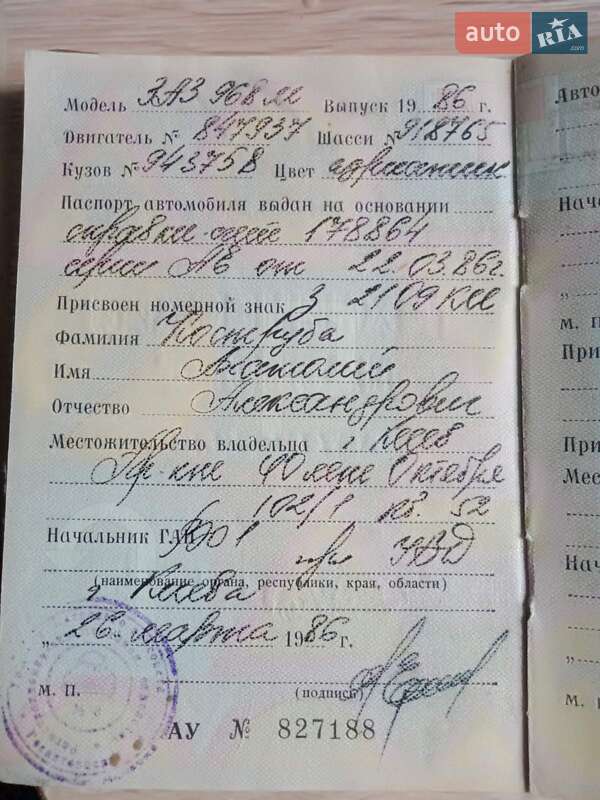 auto RIA .com
Модель ЗАЗ 968 м Выпуск 1986 г.
Двигатель № 847937 Шасси № 918765
Кузов № 943758 Цвет
Паспорт автомобиля выдан на основании
справки-счет 178864
серии АБ от 22.03.86г.
Присвоен номерной знак З 2109 КИ
Фамилия Костируба
Имя Анатолий
Отчество Александрович
Местожительство владельца г. Киев
Пр-кт 40 лет Октября
102/1 кв. 52
Начальник ГАИ гор УВД
(наименование органа, республики, края, области)
г Киева
„26" марта 1986 г.
М. П. (подпись)
АУ № 827188
Авто
Нача
„
м. п
При
При
Мес
Нача
„
м. п